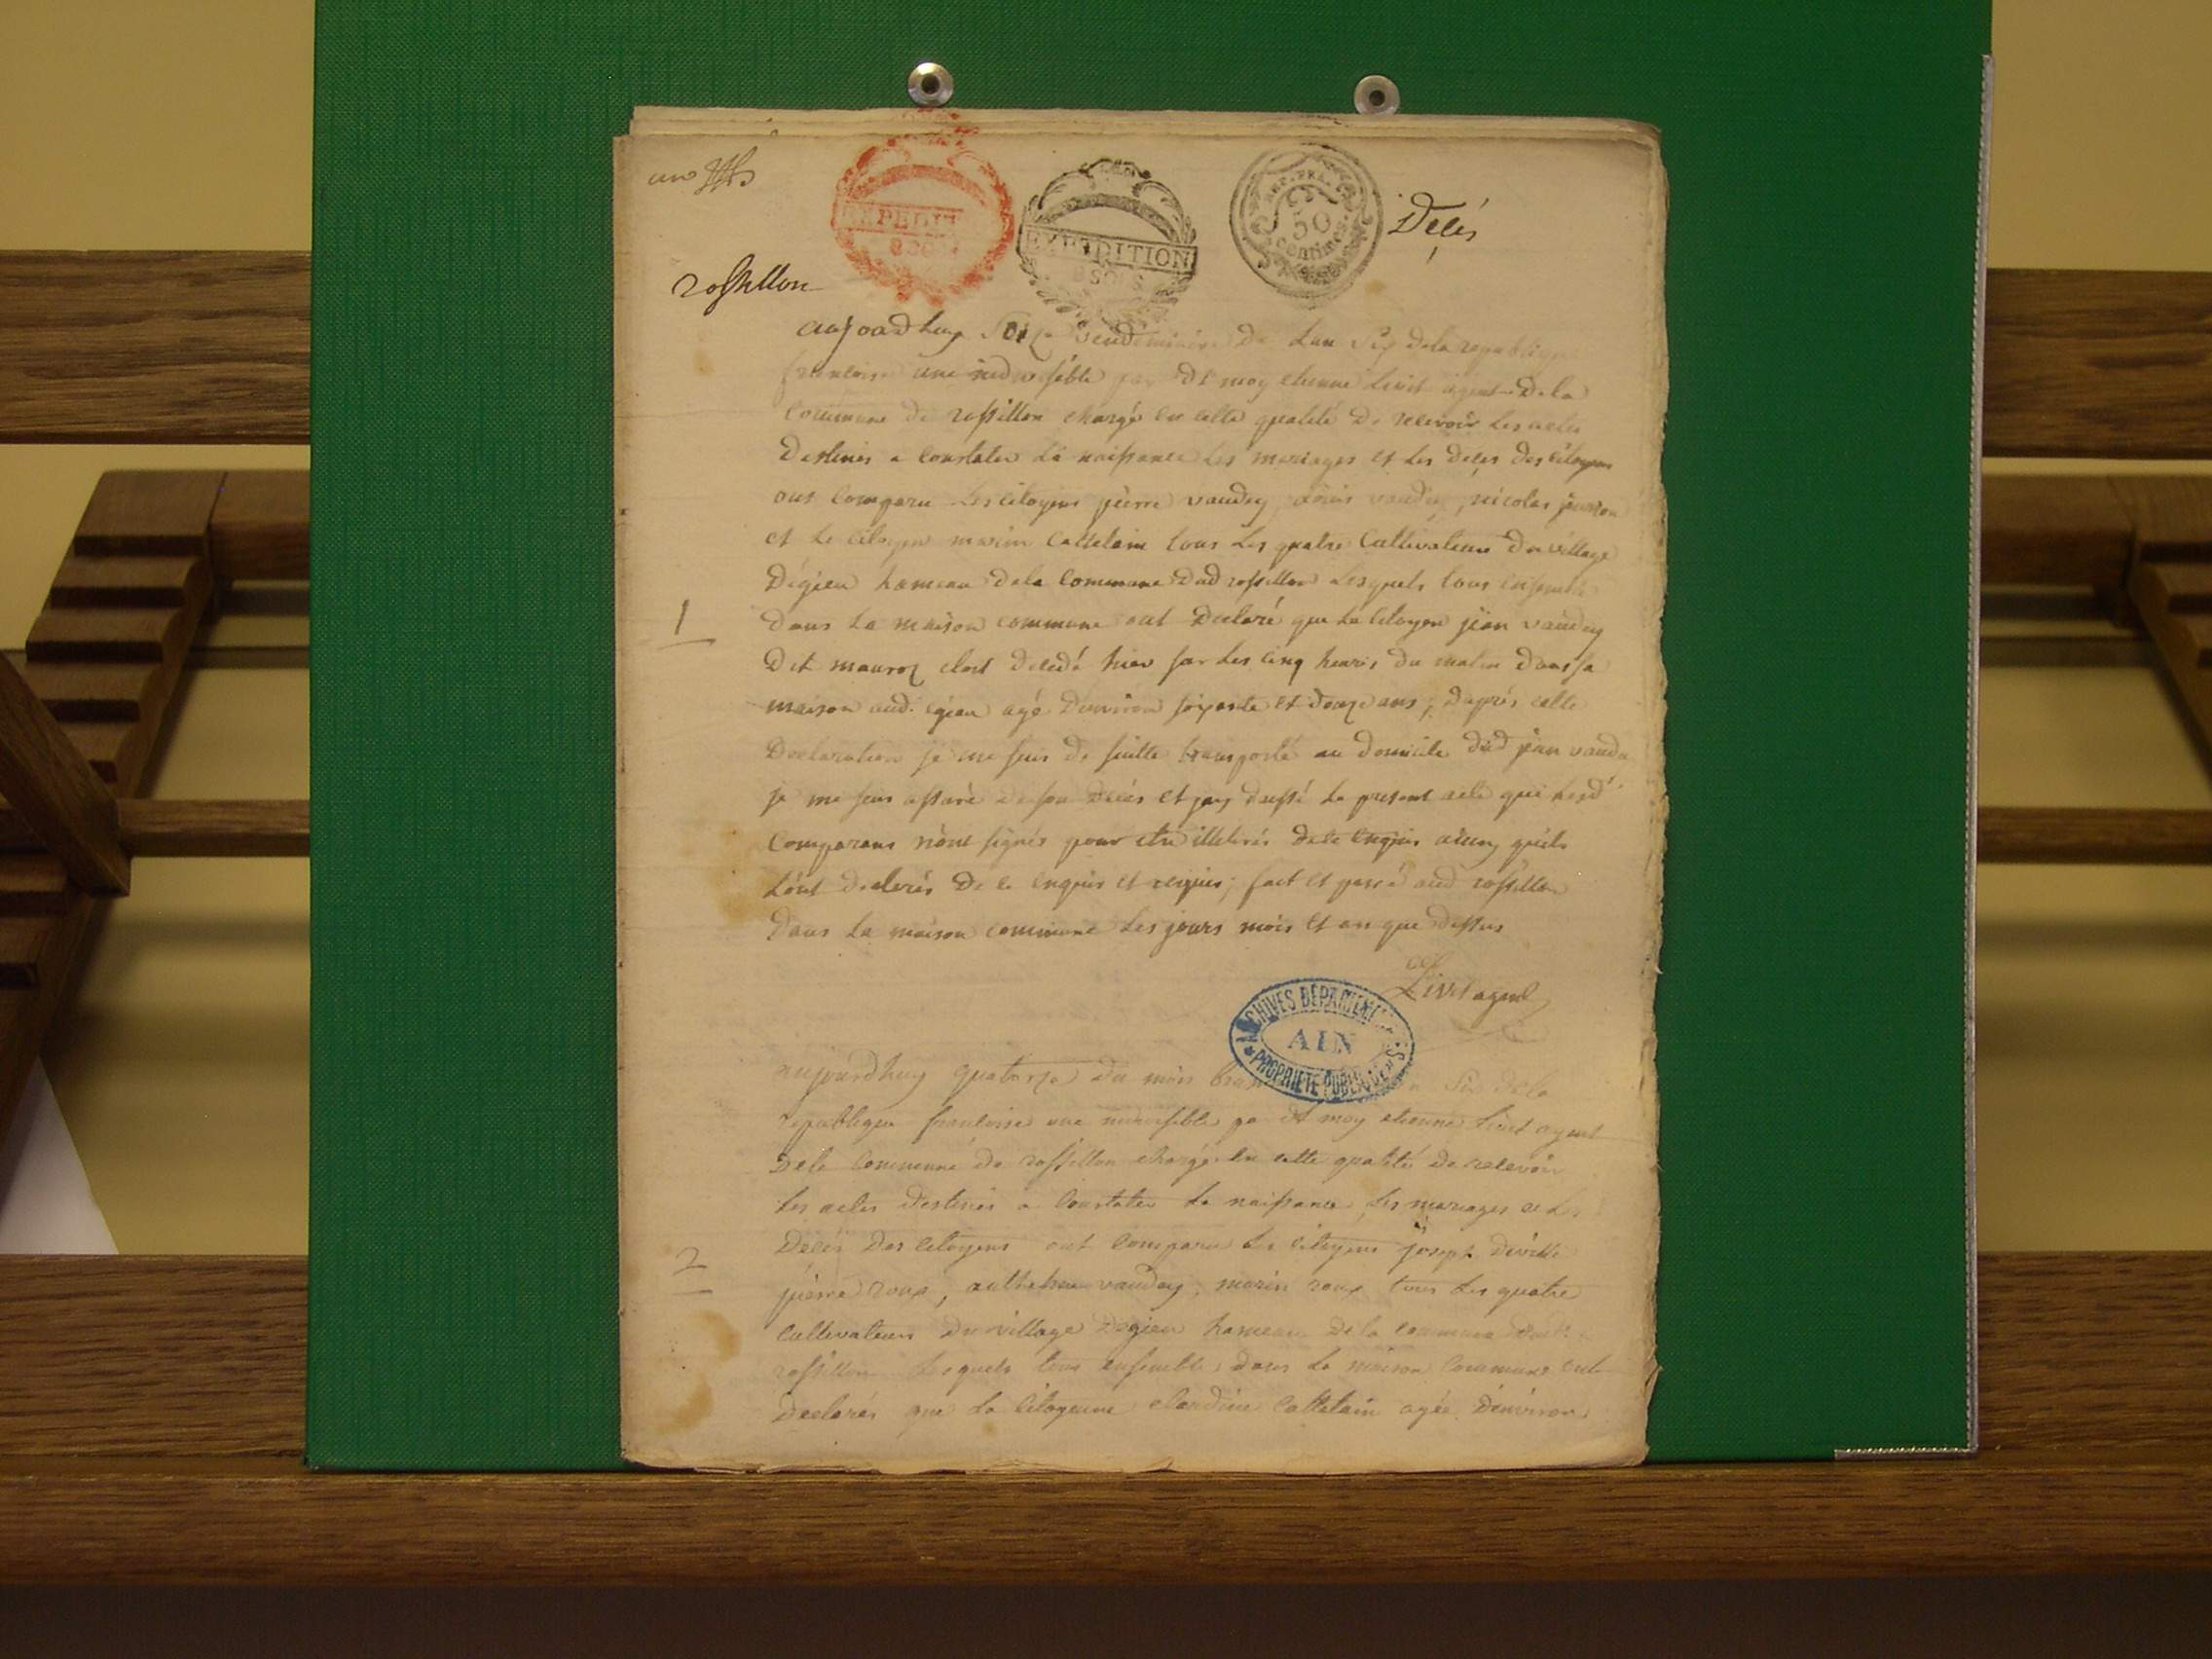 an
EXPEDIT
8 SOLS
EXPEDITION
SOLS
REP. FRA.
50
centimes.
Décés
rossillon
aujourdhuy seize vendemiaire de Lan Six dela republique
francoise une indivisible par Dt moy etienne Livet agent dela
Commune de rossillon chargé en cette qualité de recevoir Les actes
Destinés a Constater La naissance Les mariages et Les Décés des Citoyens
ont Comparu Les Citoyens pierre vaudey Louis vaudey, nicolas
et Le Citoyen marin Cattelain tous Les quatre Cultivateurs du village
Dégieu hameau dela Commune Dud rossillon Lesquels tous ensemble
1
Dans La maison commune ont Declaré que Le Citoyen jean vaudey
Dit mauroz etoit décédé hier sur Les cinq heures du matin dans sa
maison aud. egieu agé Denviron soixante et douze ans; Daprés cette
Declaration je me suis de suitte transporté au domicile dud jean vaudey
je me suis assuré de son décés et jay dressé Le present acte que Lesd.
Comparans nont signés pour etre illetérés de ce enquis ainsy quils
Lont déclarés De ce enquis et requis; fait et passé aud rossillon
Dans La maison commune Les jours mois et an que dessus
Livet agent
ARCHIVES DEPARTEMENTALES
AIN
PROPRIÉTÉ PUBLIQUE
aujourdhuy quatorze du mois Six dela
republique francoise une indivisible par Dt moy etienne Livet agent
Dela Commune de rossillon chargé en cette qualité de recevoir
Les actes Destinés a Constater La naissance, Les mariages et Les
Décés Des Citoyens ont Comparu Les Citoyens joseph Deville
2
pierre roux, anthelme vaudey, marin roux tous Les quatre
Cultivateurs du village Dégieu hameau de la commune dud.
rossillon Lesquels tous ensemble dans La maison Commune ont
Declarés que La Citoyenne claudine Cattelain agée Denviron